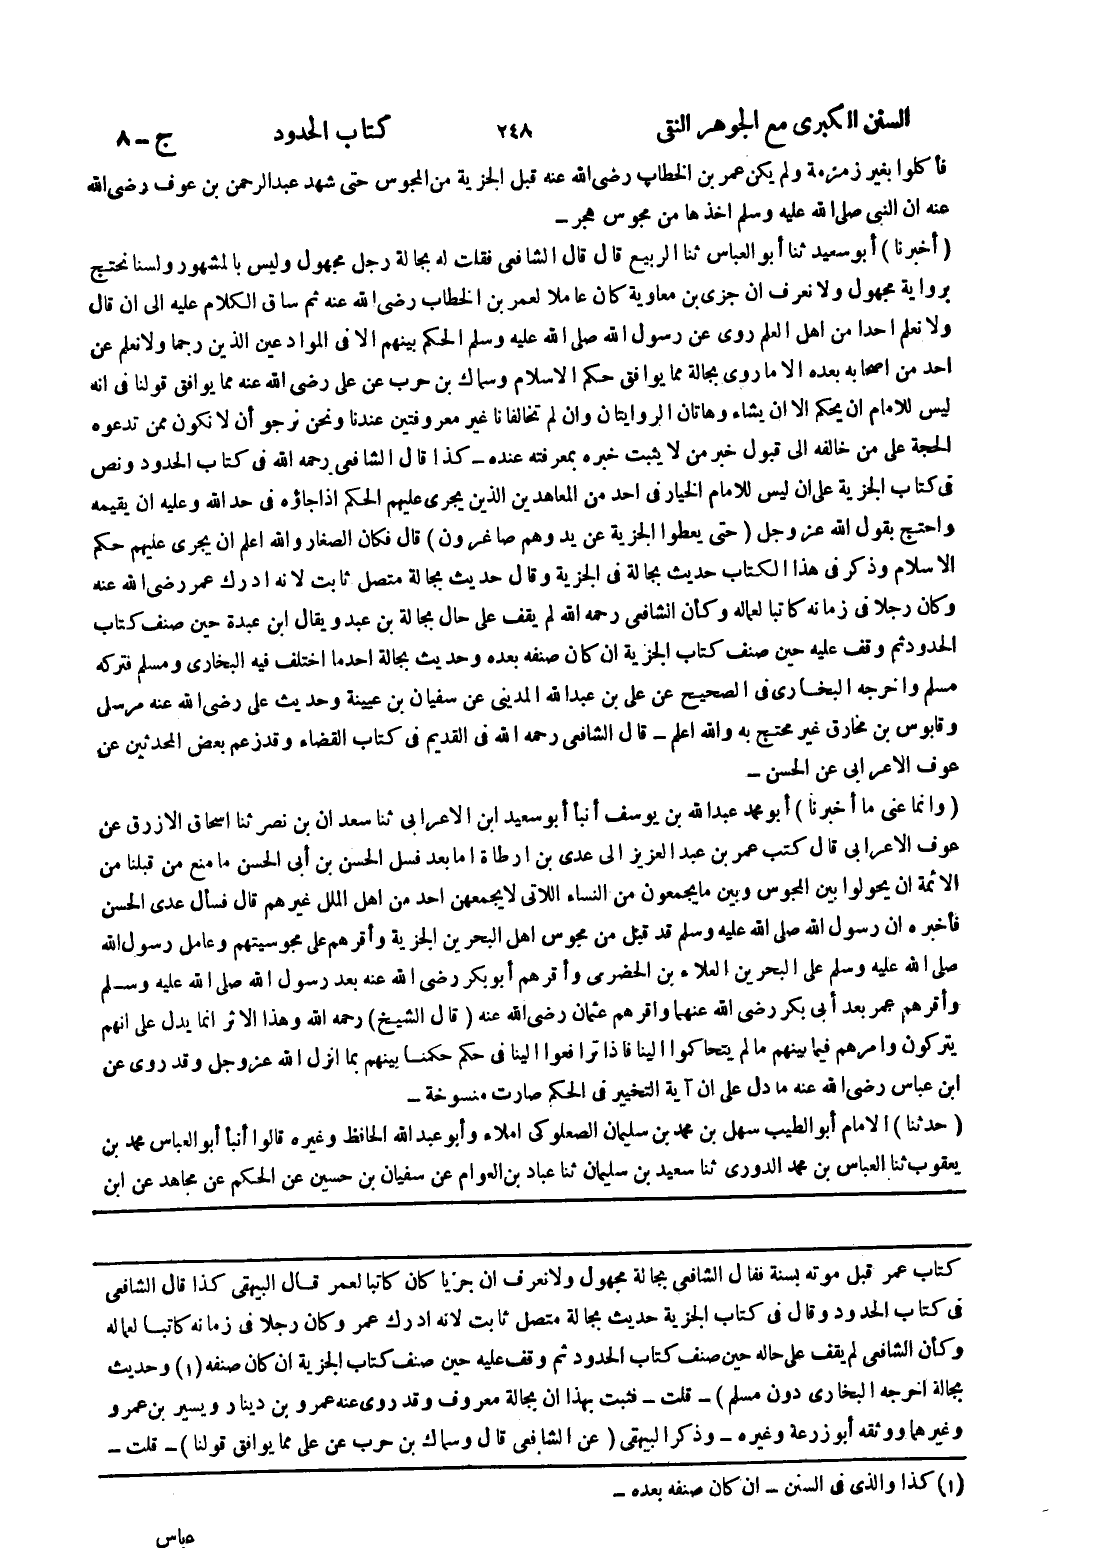 السنن الكبرى مع الجوهر النقى ٢٤٨ كتاب الحدود ج – ٨
فأكلوا بغير زمزمة ولم يكن عمر بن الخطاب رضى الله عنه قبل الجزية من المجوس حتى شهد عبد الرحمن بن عوف رضى الله
عنه ان النبى صلى الله عليه وسلم اخذها من مجوس هجر –
( أخبرنا ) أبو سعيد ثنا أبو العباس ثنا الربيع قال قال الشافعى فقلت له بجالة رجل مجهول وليس بالمشهور ولسنا نحتج
برواية مجهول ولا نعرف ان جزى بن معاوية كان عاملا لعمر بن الخطاب رضى الله عنه ثم ساق الكلام عليه الى ان قال
ولا نعلم احدا من اهل العلم روى عن رسول الله صلى الله عليه وسلم الحكم بينهم الا فى الموادعين الذين رجما ولا نعلم عن
احد من اصحابه بعده الا ما روى بجالة مما يوافق حكم الاسلام وسماك بن حرب عن على رضى الله عنه مما يوافق قولنا فى انه
ليس للامام ان يحكم الا ان يشاء وهاتان الروايتان وان لم تخالفانا غير معروفتين عندنا ونحن نرجو أن لا نكون ممن تدعوه
الحجة على من خالفه الى قبول خبر من لا يثبت خبره بمعرفته عنده – كذا قال الشافعى رحمه الله فى كتاب الحدود ونص
فى كتاب الجزية على ان ليس للامام الخيار فى احد من المعاهدين الذين يجرى عليهم الحكم اذا جاؤه فى حد الله وعليه ان يقيمه
واحتج بقول الله عز وجل ( حتى يعطوا الجزية عن يد وهم صاغرون ) قال فكان الصغار والله اعلم ان يجرى عليهم حكم
الاسلام وذكر فى هذا الكتاب حديث بجالة فى الجزية وقال حديث بجالة متصل ثابت لانه ادرك عمر رضى الله عنه
وكان رجلا فى زمانه كاتبا لعماله وكأن الشافعى رحمه الله لم يقف على حال بجالة بن عبد ويقال ابن عبدة حين صنف كتاب
الحدود ثم وقف عليه حين صنف كتاب الجزية ان كان صنفه بعده وحديث بجالة احد ما اختلف فيه البخارى ومسلم فتركه
مسلم واخرجه البخارى فى الصحيح عن على بن عبد الله المدينى عن سفيان بن عيينة وحديث على رضى الله عنه مرسل
وقابوس بن مخارق غير محتج به والله اعلم – قال الشافعى رحمه الله فى القديم فى كتاب القضاء وقد زعم بعض المحدثين عن
عوف الاعرابى عن الحسن –
( وانما عنى ما أخبرنا ) أبو محمد عبد الله بن يوسف أنبأ أبو سعيد ابن الاعرابى ثنا سعدان بن نصر ثنا اسحاق الازرق عن
عوف الاعرابى قال كتب عمر بن عبد العزيز الى عدى بن ارطاة اما بعد فسل الحسن بن أبى الحسن ما منع من قبلنا من
الائمة ان يحولوا بين المجوس وبين ما يجمعون من النساء اللاتى لا يجمعهن احد من اهل الملل غيرهم قال فسأل عدى الحسن
فأخبره ان رسول الله صلى الله عليه وسلم قد قبل من مجوس اهل البحرين الجزية وأقرهم على مجوسيتهم وعامل رسول الله
صلى الله عليه وسلم على البحرين العلاء بن الحضرى وأقرهم أبو بكر رضى الله عنه بعد رسول الله صلى الله عليه وسلم
وأقرهم عمر بعد أبى بكر رضى الله عنهما واقرهم عثمان رضى الله عنه ( قال الشيخ ) رحمه الله وهذا الاثر انما يدل على انهم
يتركون وامرهم فيما بينهم ما لم يتحاكموا الينا فاذا ترافعوا الينا فى حكم حكمنا بينهم بما انزل الله عز وجل وقد روى عن
ابن عباس رضى الله عنه ما دل على ان آية التخيير فى الحكم صارت منسوخة –
( حدثنا ) الامام أبو الطيب سهل بن محمد بن سليمان الصعلوكى املاء وأبو عبد الله الحافظ وغيره قالوا أنبأ أبو العباس محمد بن
يعقوب ثنا العباس بن محمد الدورى ثنا سعيد بن سليمان ثنا عباد بن العوام عن سفيان بن حسين عن الحكم عن مجاهد عن ابن
كتاب عمر قبل موته بسنة فقال الشافعى بجالة مجهول ولا نعرف ان جزيا كان كاتبا لعمر قال البيهقى كذا قال الشافعى
فى كتاب الحدود وقال فى كتاب الجزية حديث بجالة متصل ثابت لانه ادرك عمر وكان رجلا فى زمانه كاتبا لعماله
وكأن الشافعى لم يقف على حاله حين صنف كتاب الحدود ثم وقف عليه حين صنف كتاب الجزية ان كان صنفه (١) وحديث
بجالة اخرجه البخارى دون مسلم ) – قلت – فثبت بهذا ان بجالة معروف وقد روى عنه عمرو بن دينار ويسير بن عمرو و
وغيرهما ووثقه أبو زرعة وغيره – وذكر البيهقى ( عن الشافعى قال وسماك بن حرب عن على مما يوافق قولنا ) – قلت –
(١) كذا والذى فى السنن – ان كان صنفه بعده –
عباس